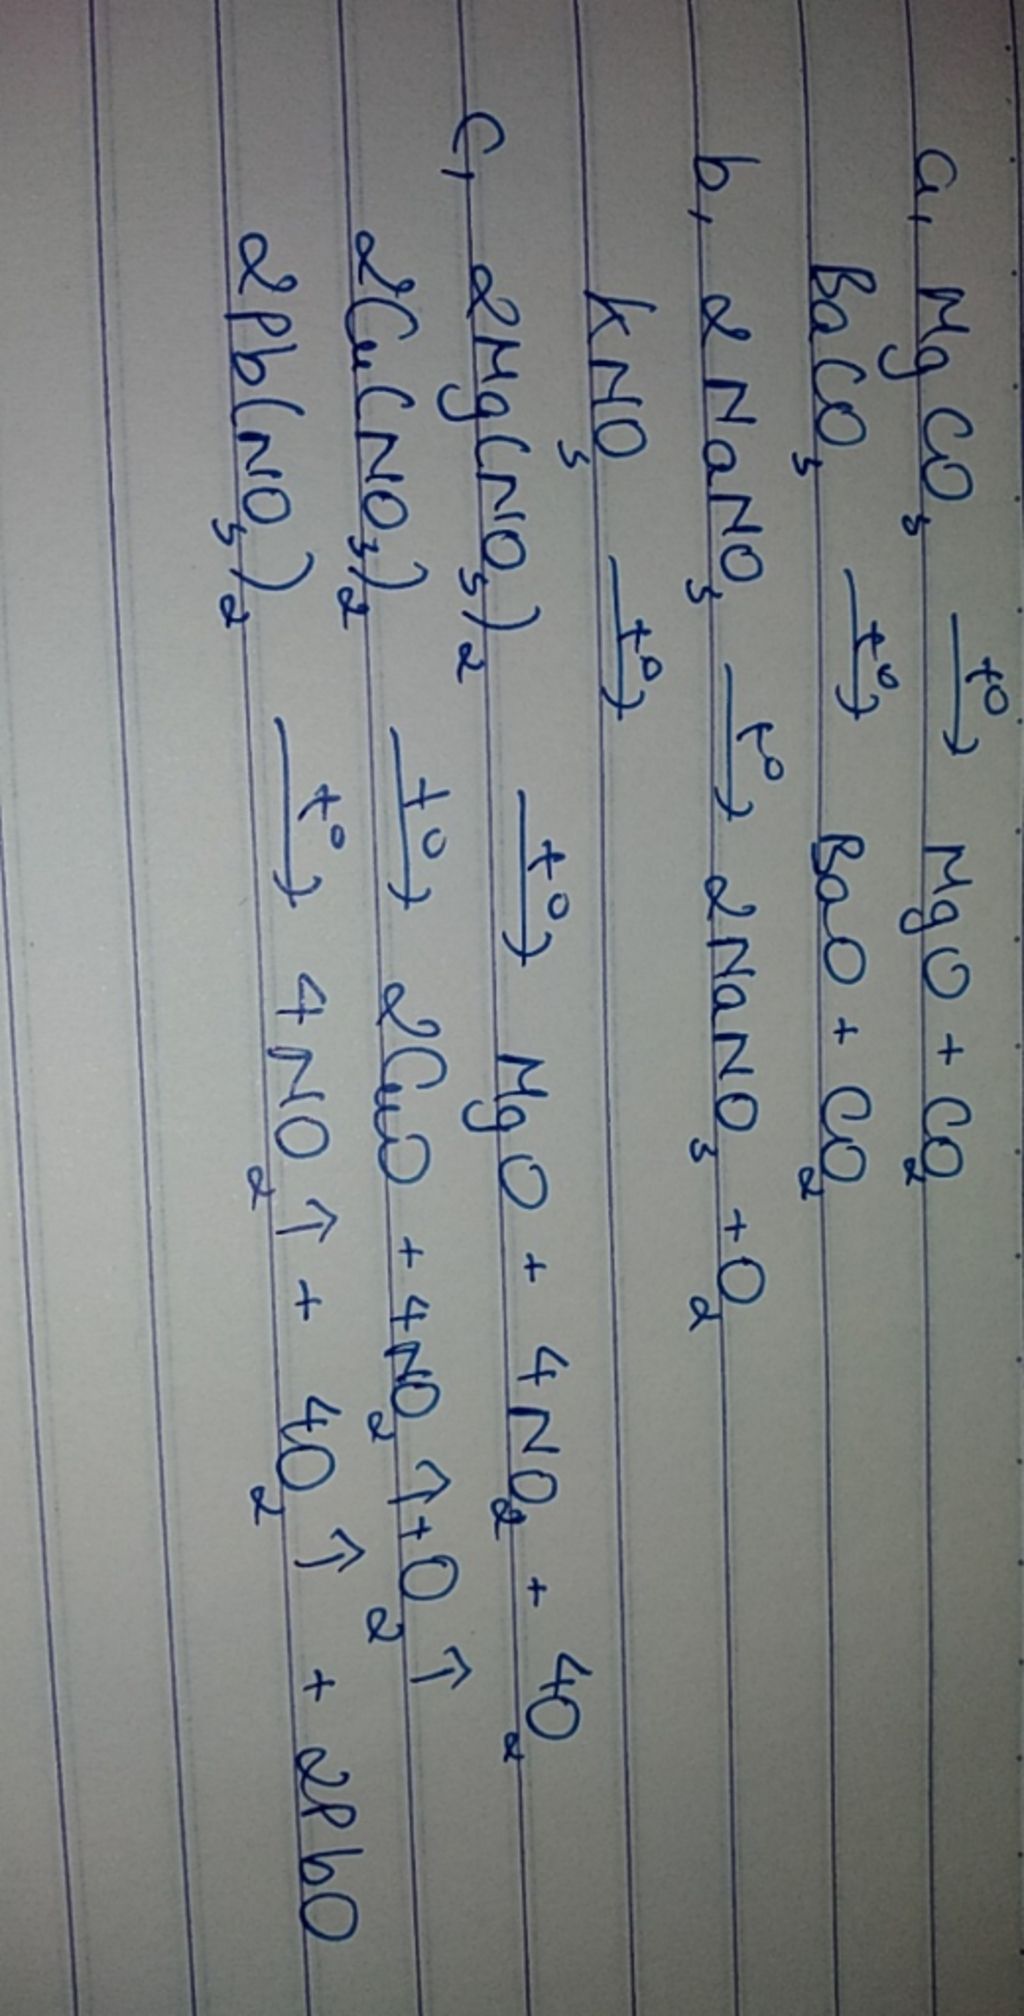 a, MgCO₃ →t⁰ MgO + CO₂
BaCO₃ →t⁰ BaO + CO₂
b, 2NaNO₃ →t⁰ 2NaNO₃ + O₂
KNO₃ →t⁰
c, 2Mg(NO₃)₂ →t⁰ MgO + 4NO₂ + 4O₂
2Cu(NO₃)₂ →t⁰ 2CuO + 4NO₂ ↑ + O₂ ↑
2Pb(NO₃)₂ →t⁰ 4NO₂ ↑ + 4O₂ ↑ + 2PbO